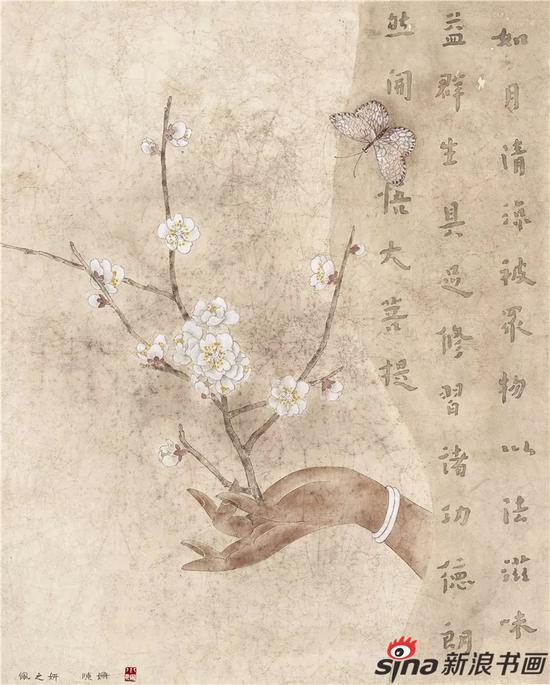 如月清凉被眾物以法滋味
益群生具足修習諸功德朗
然開悟大菩提
佩之妍
sina新浪书画